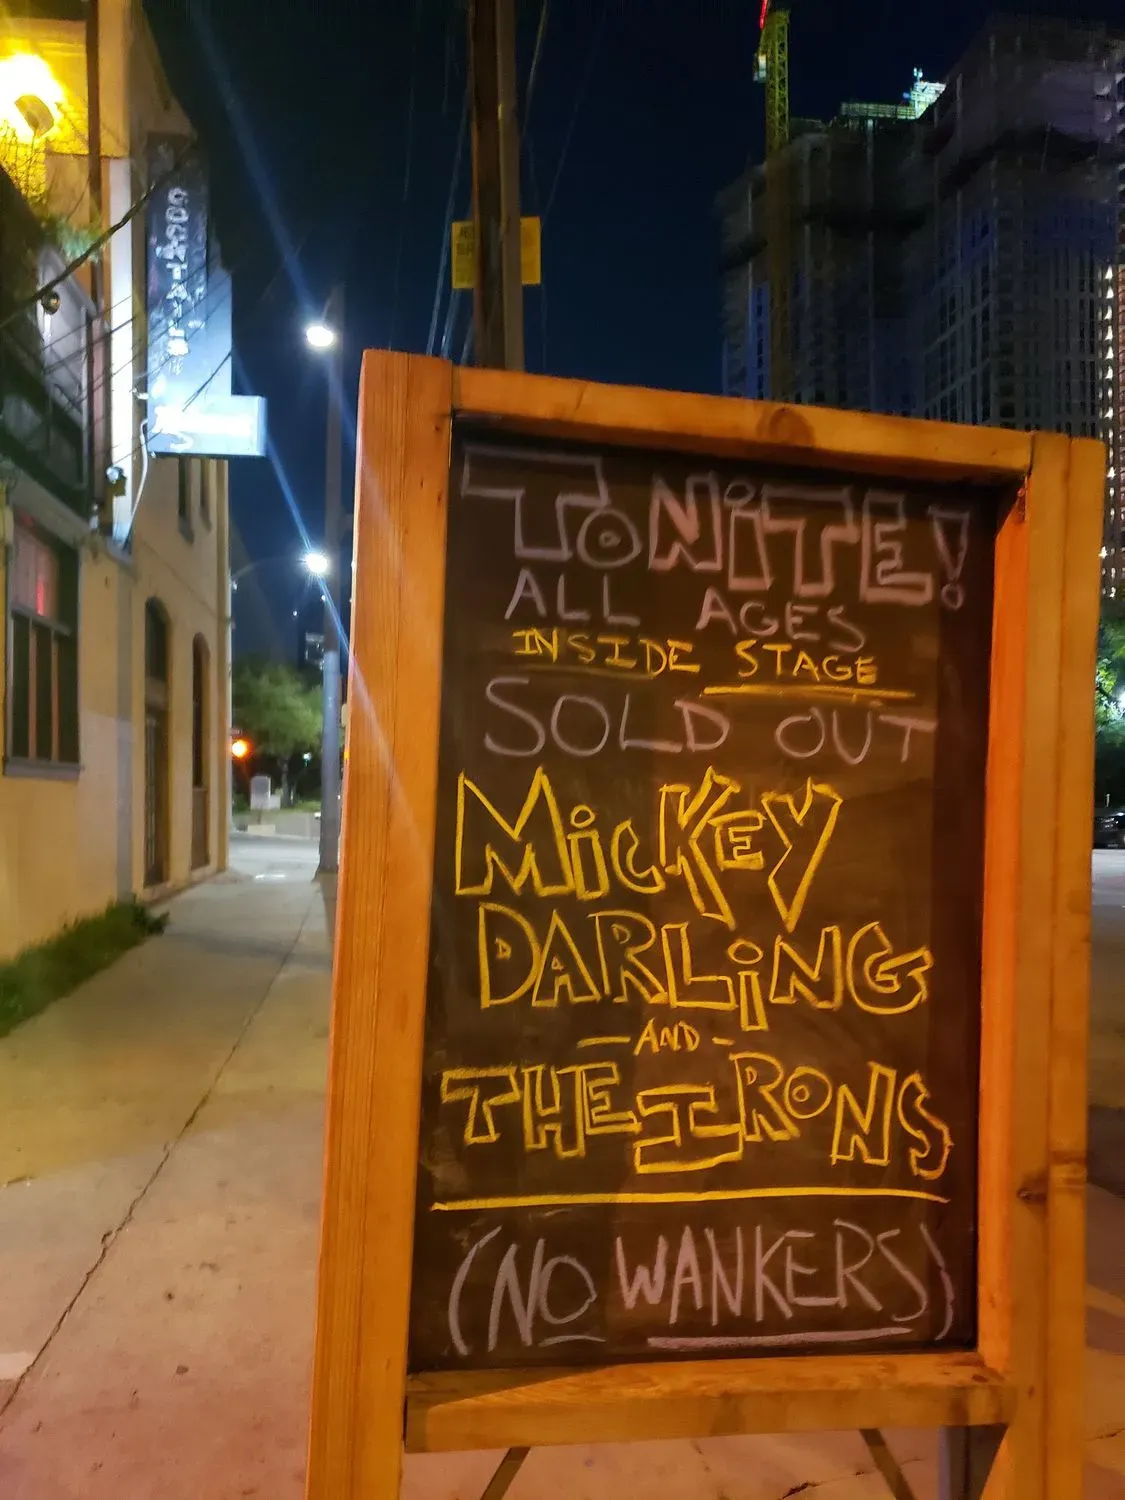 COCKTAILS
TONiTE!
ALL AGES
INSIDE STAGE
SOLD OUT
MicKEY
DARLiNG
-AND-
THE IRONS
(NO WANKERS)